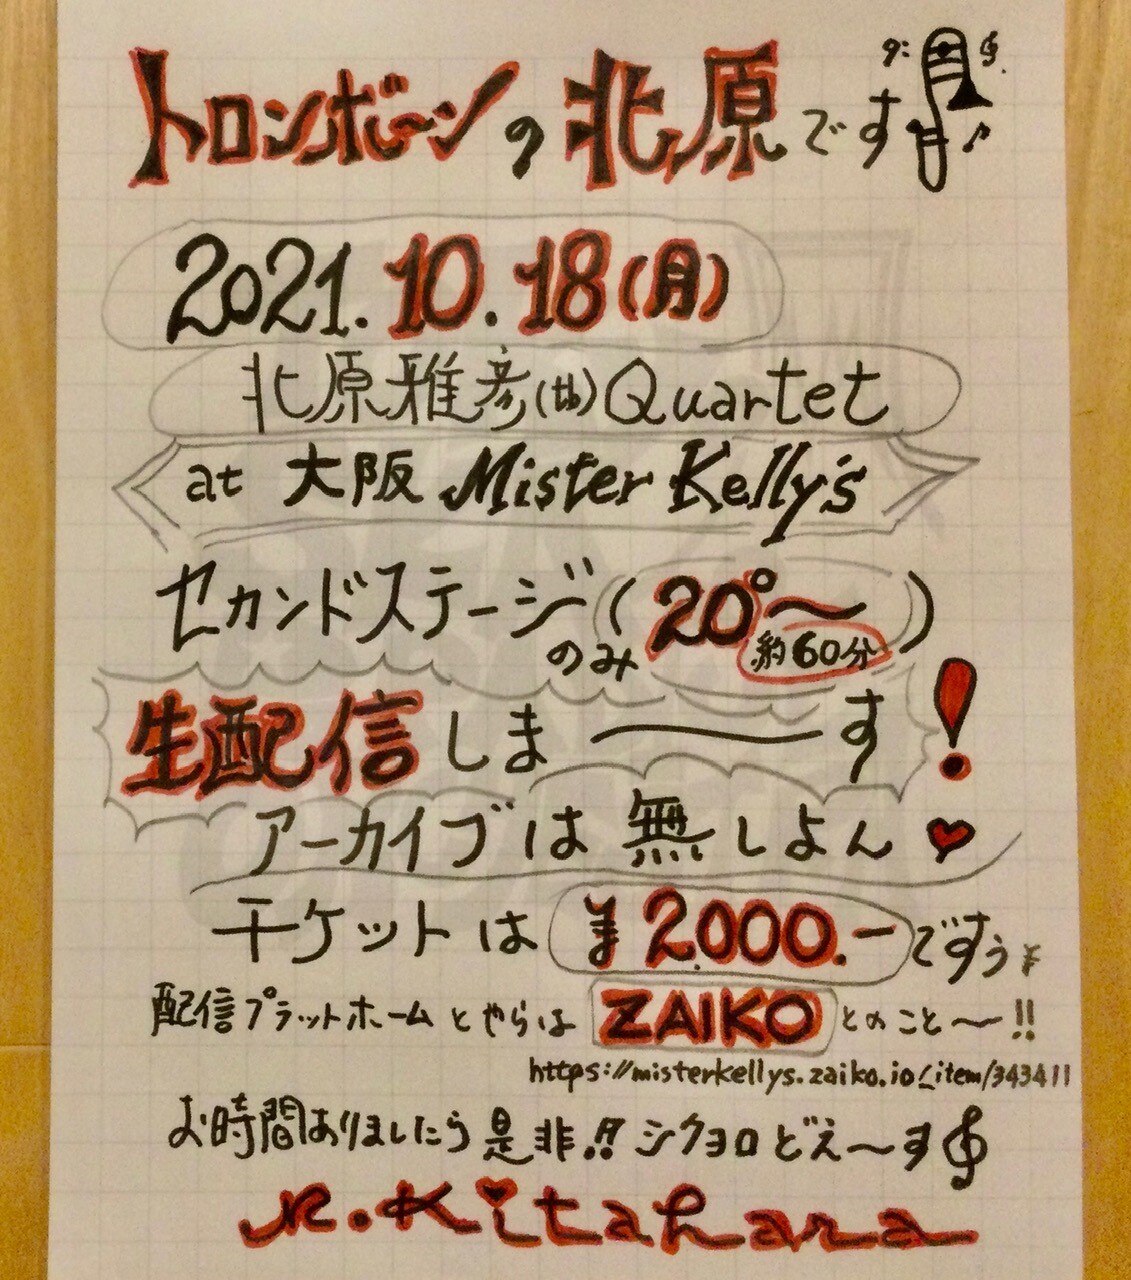 トロンボーンの北原です
2021.10.18(月)
北原雅彦(tb)Quartet
at 大阪 Mister Kelly's
セカンドステージのみ(20°〜約60分)
生配信しま〜す!
アーカイブは無しよん♥
チケットは¥2,000.-ですぅ¥
配信プラットホームとやらはZAIKOとのこと〜!!
https://misterkellys.zaiko.io/_item/343411
お時間ありましたら是非!!シクヨロどえ〜す
M.Kitahara